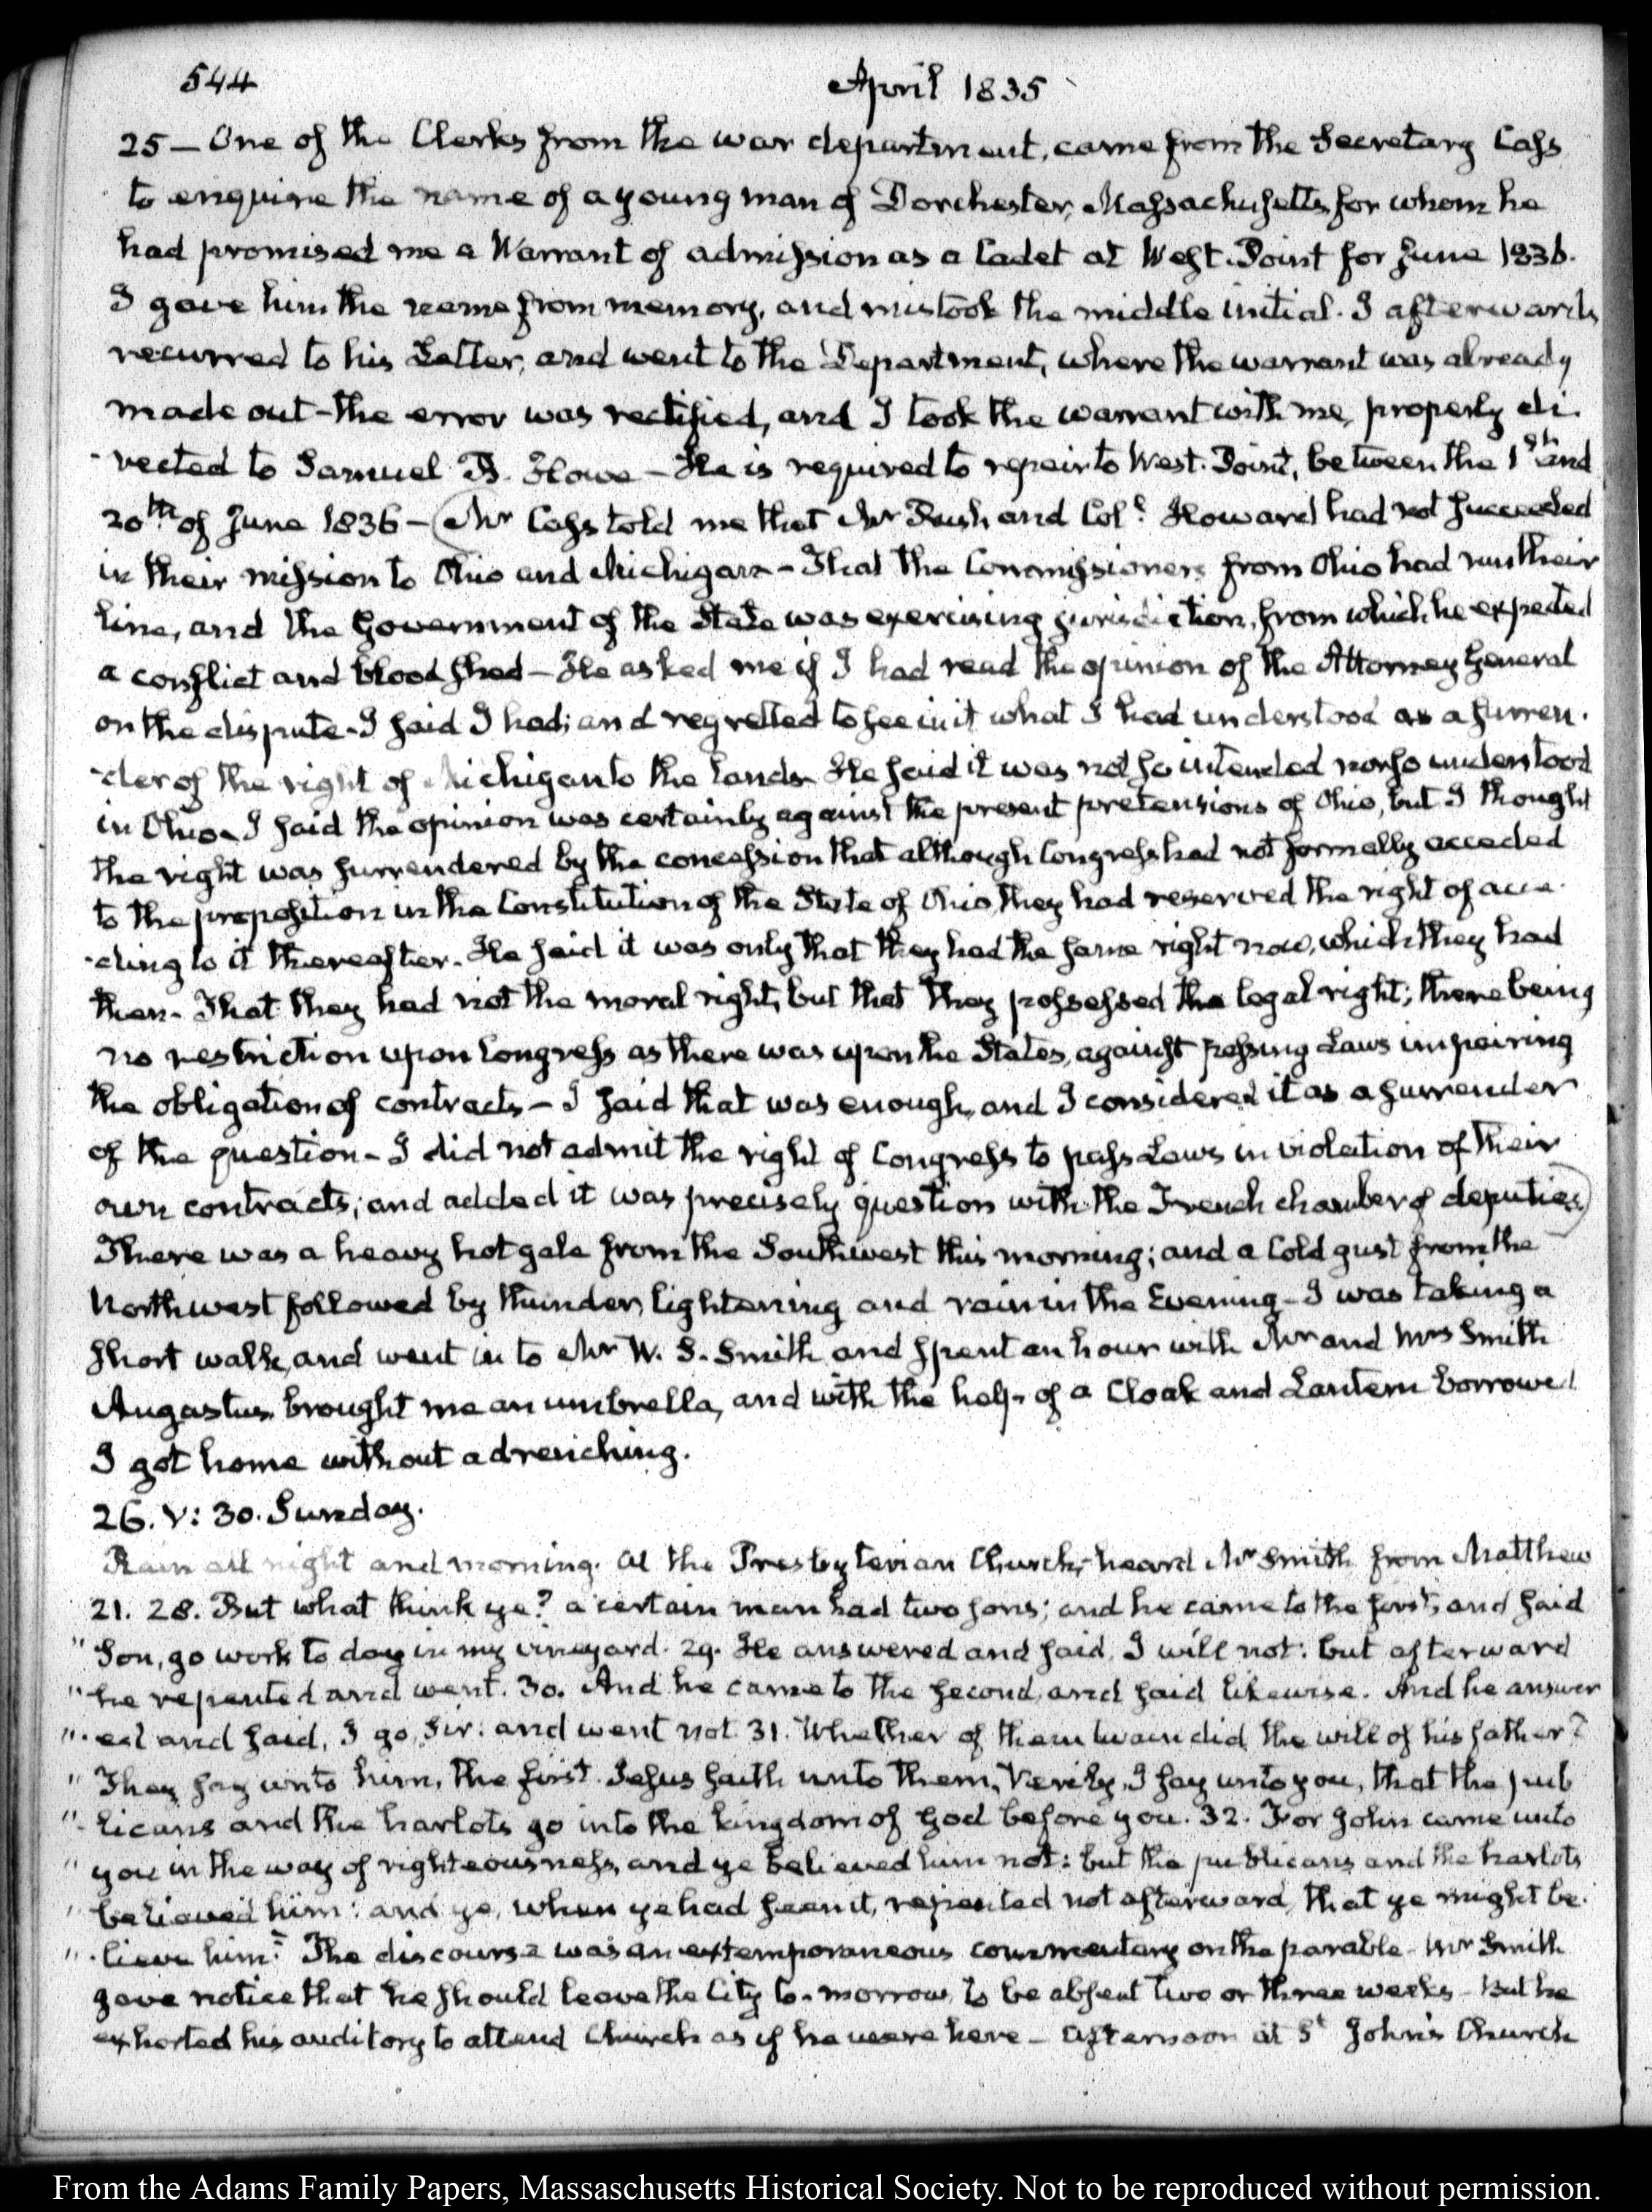 544 April 1835
25 — One of the Clerks from the war department, came from the Secretary Cass
to enquire the name of a young man of Dorchester, Massachusetts for whom he
had promised me a Warrant of admission as a Cadet at West. Point for June 1836.
I gave him the name from memory, and mistook the middle initial. I afterwards
recurred to his Letter, and went to the Department, where the warrant was already
made out - the error was rectified, and I took the warrant with me, properly di-
-rected to Samuel B. Howe - He is required to repair to West. Point, between the 1st and
20th of June 1836 - (Mr Cass told me that Mr Rush and Col. Howard had not succeeded
in their mission to Ohio and Michigan - That the Commissioners from Ohio had run their
line, and the Government of the State was exercising jurisdiction, from which he expected
a conflict and blood shed - He asked me if I had read the opinion of the Attorney General
on the dispute - I said I had; and regretted to see in it what I had understood as a surren-
-der of the right of Michigan to the lands He said it was not so intended nor so understood
in Ohio - I said the opinion was certainly against the present pretensions of Ohio, but I thought
the right was surrendered by the concession that although Congress had not formally acceded
to the proposition in the Constitution of the State of Ohio, they had reserved the right of acce-
-ding to it thereafter. He said it was only that they had the same right now, which they had
then - That they had not the moral right, but that they possessed the legal right; there being
no restriction upon Congress as there was upon the States, against passing Laws impairing
the obligation of contracts - I said that was enough, and I considered it as a surrender
of the question - I did not admit the right of Congress to pass Laws in violation of their
own contracts; and added it was precisely question with the French chamber of deputies)
There was a heavy hot gale from the Southwest this morning; and a Cold gust from the
Northwest followed by thunder, lightening and rain in the Evening - I was taking a
short walk, and went in to Mr W. S. Smith and spent an hour with Mr and Mrs Smith
Augustus brought me an umbrella, and with the help of a Cloak and Lantern borrowed
I got home without a drenching.
26. V: 30. Sunday.
Rain all night and morning. At the Presbyterian Church, heard Mr Smith from Matthew
21. 28. But what think ye? a certain man had two sons; and he came to the first, and said
" Son, go work to day in my vineyard. 29. He answered and said, I will not: but afterward
" he repented and went. 30. And he came to the second, and said likewise. And he answer
" -ed and said, I go, Sir: and went not. 31. Whether of them twain did the will of his father?
" They say unto him, the first. Jesus saith unto them, Verily, I say unto you, that the pub
" -licans and the harlots go into the kingdom of God before you. 32. For John came unto
" you in the way of righteousness, and ye believed him not: but the publicans and the harlots
" believed him: and ye, when ye had seen it, repented not afterward, that ye might be-
" -lieve him." The discourse was an extemporaneous commentary on the parable - Mr Smith
gave notice that he should leave the City to-morrow, to be absent two or three weeks - But he
exhorted his auditory to attend Church as if he were here - Afternoon at St John's Church
From the Adams Family Papers, Massaschusetts Historical Society. Not to be reproduced without permission.